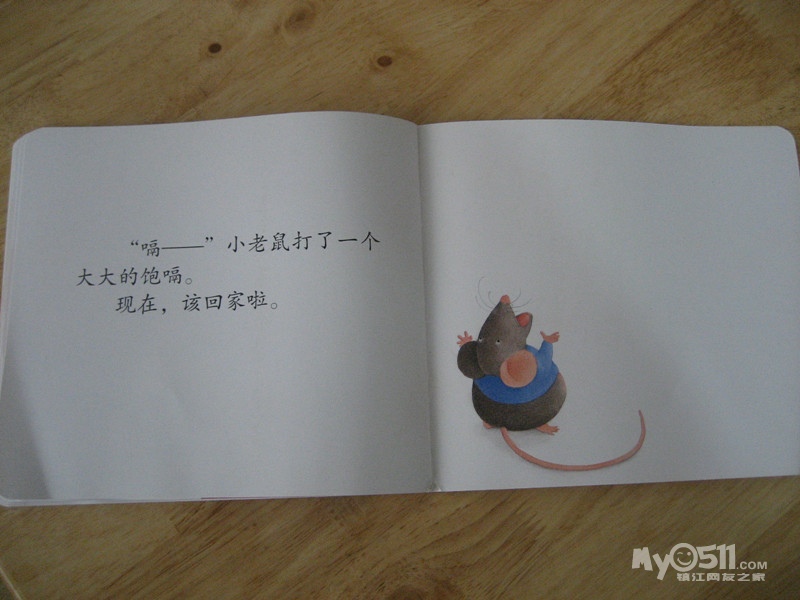 “嗝——”小老鼠打了一个
大大的饱嗝。
现在，该回家啦。
My0511.COM
镇江网友之家